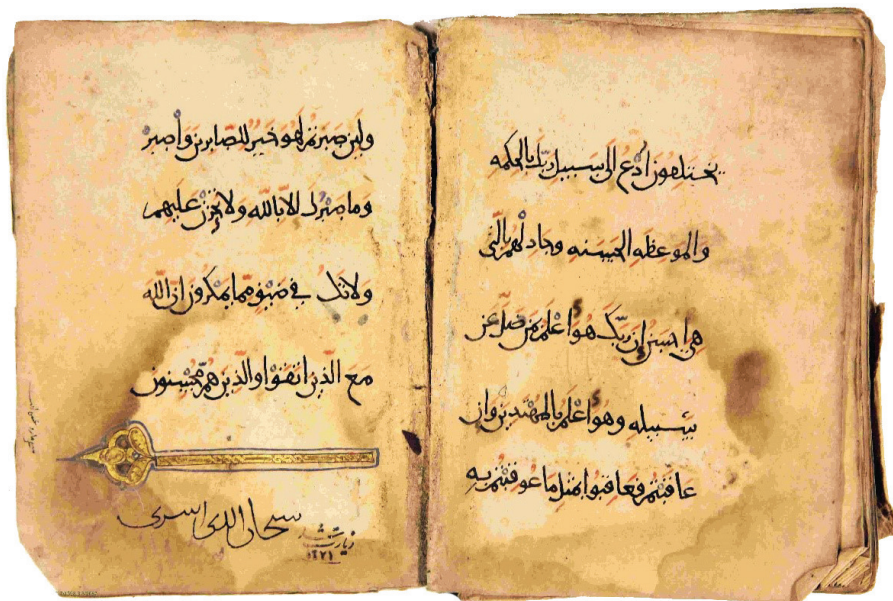 يختلفون ادع الى سبيل ربك بالحكمه
والموعظه الحسنه وجادلهم بالتى
هى احسن ان ربك هو اعلم بمن ضل عن
سبيله وهو اعلم بالمهتدين وان
عاقبتم فعاقبوا بمثل ما عوقبتم به
ولين صبرتم لهو خير للصابرين واصبر
وما صبرك الا بالله ولا تحزن عليهم
ولا تك في ضيق مما يمكرون ان الله
مع الذين اتقوا والذين هم محسنون
سبحان الذى اسرى
زيارت شد